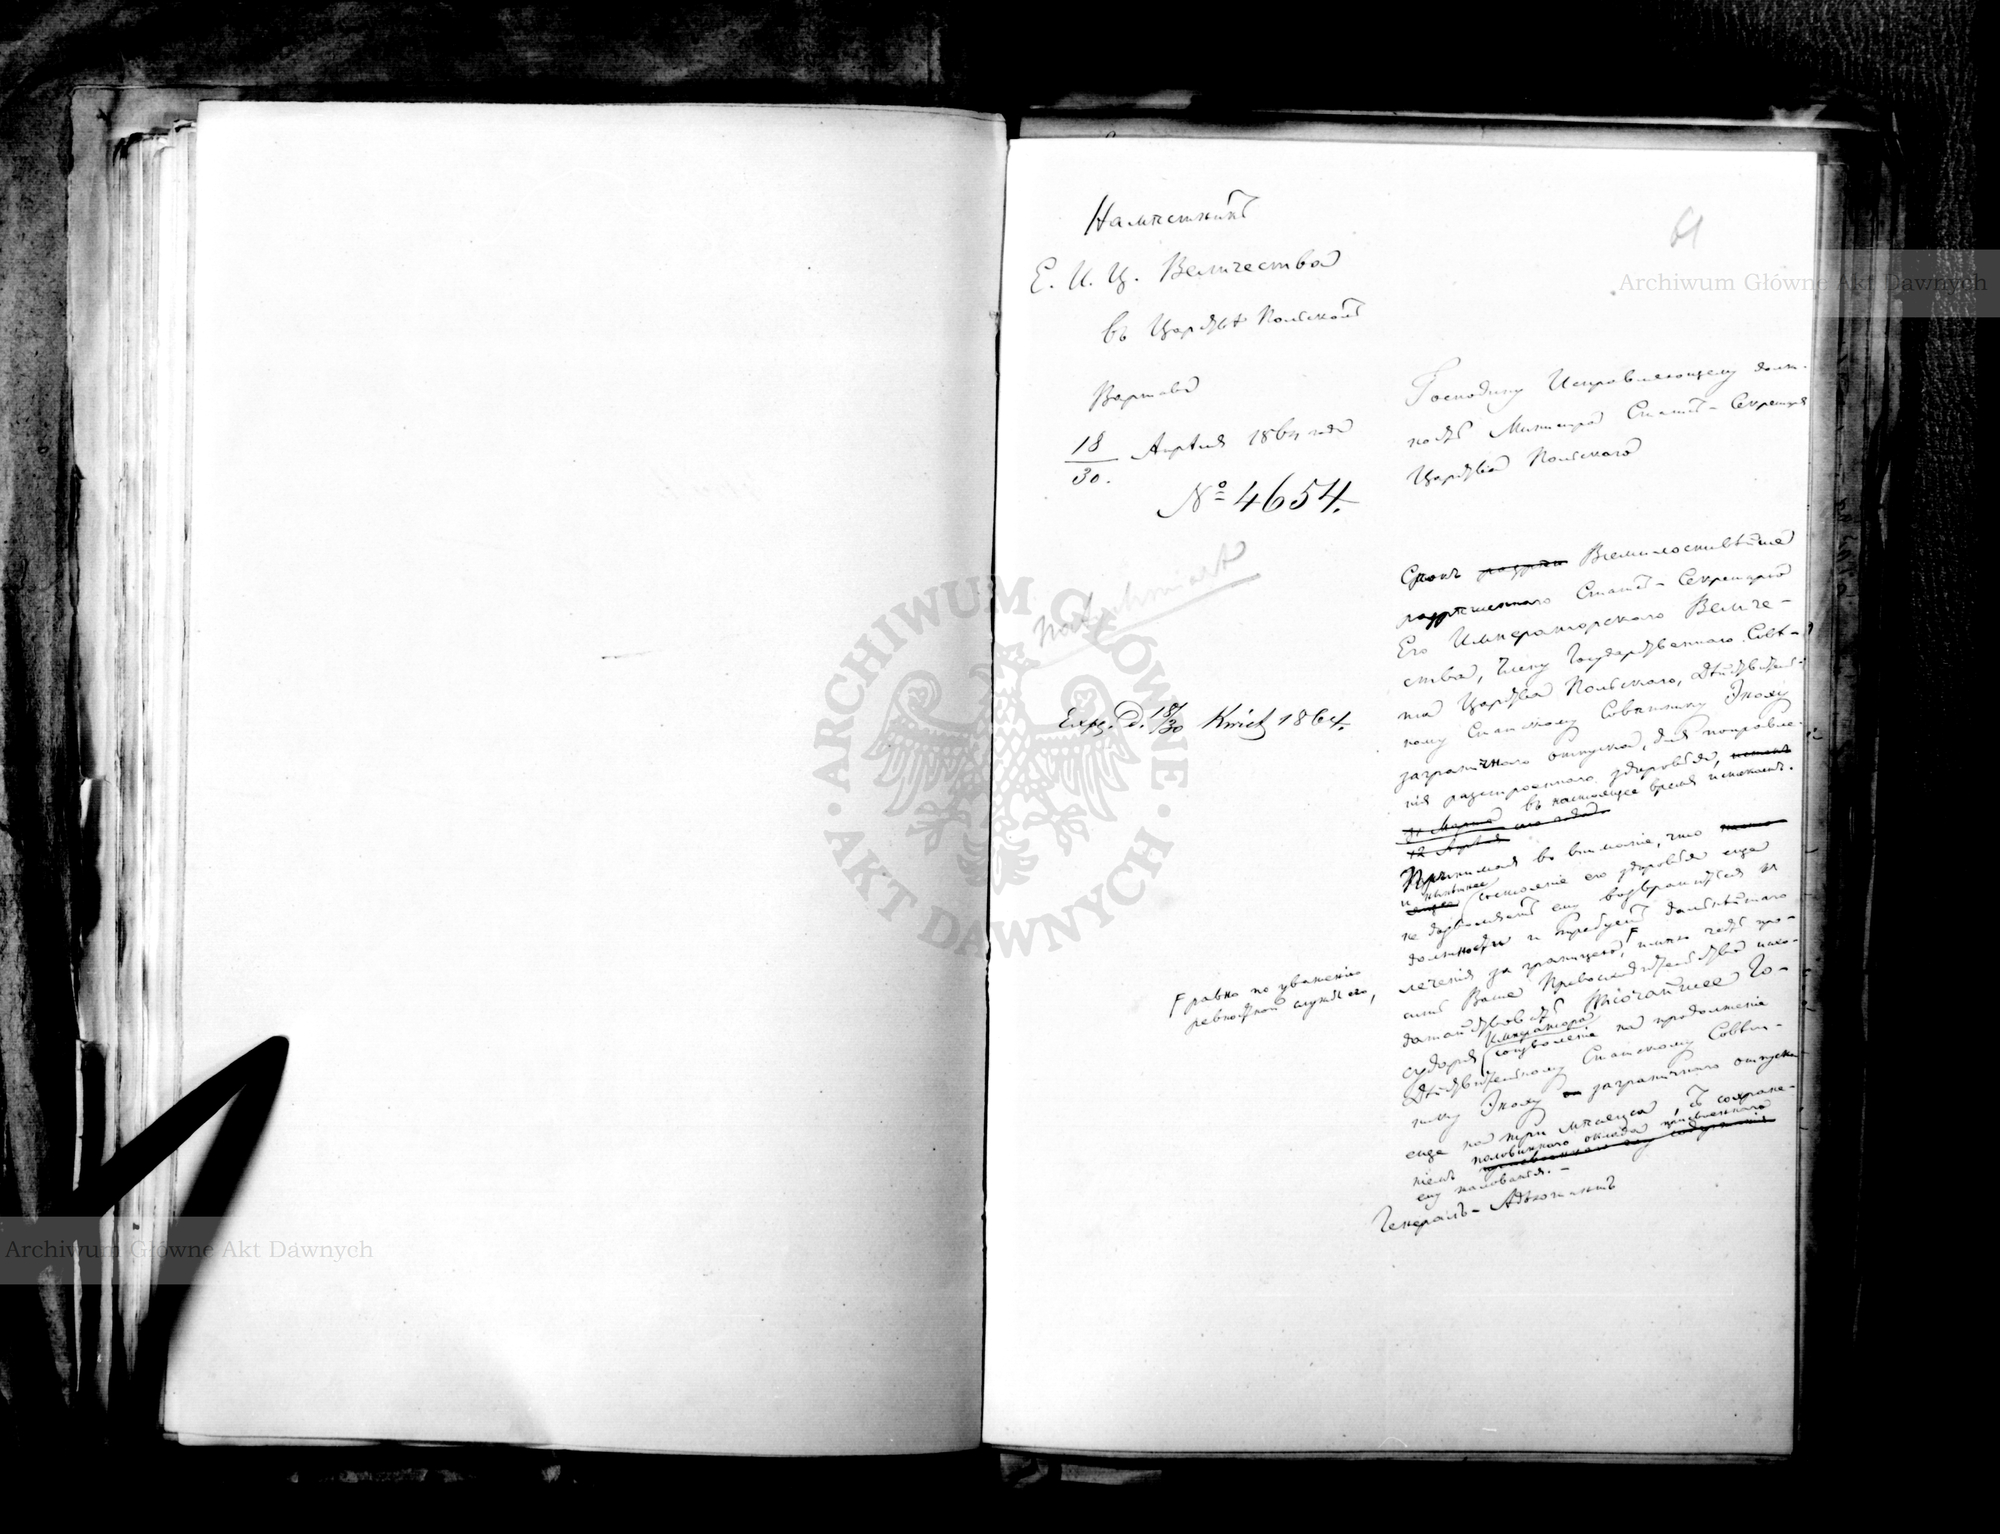 61
Намѣстникъ
Е. И. Ц. Величества
въ Царствѣ Польскомъ
Варшава
18/30 Апрѣля 1864 года
№ 4654.
Господину Исправляющему долж-
ность Министра Статсъ-Секретаря
Царства Польскаго
Exp. d. 18/30 Kwiet 1864.
Срокъ Всемилостивѣйше
разрѣшеннаго Статсъ-Секретарю
Его Императорскаго Величе-
ства, Члену Государственнаго Совѣ-
та Царства Польскаго, Дѣйствитель-
ному Статскому Совѣтнику Эноху
заграничнаго отпуска, для поправле-
нія разстроеннаго здоровья,
въ настоящее время истекаетъ.
11 Марта сего года.
12 Апрѣля
Принимая во вниманіе, что
и нынѣшнее
состояніе его здоровья еще
не дозволяетъ ему возвратиться къ
должности и требуетъ дальнѣйшаго
леченія за границею, F имѣю честь про-
F равно по уваженію
ревностной службы его,
сить Ваше Превосходительство исхо-
датайствовать Высочайшее Го-
сударя Императора
соизволеніе на продолженіе
Дѣйствительному Статскому Совѣт-
нику Эноху заграничнаго отпуска
еще на три мѣсяца, съ сохране-
ніемъ половиннаго оклада присвоеннаго
ему жалованья.-
Генералъ-Адъютантъ
Archiwum Główne Akt Dawnych
Archiwum Główne Akt Dawnych
· ARCHIWUM GŁÓWNE · AKT DAWNYCH